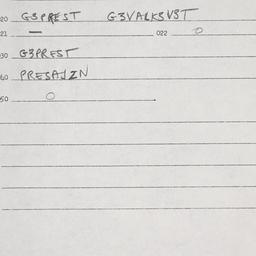 20 G3PREST G3VALKSV3T
21 — 022 0
30 G3PREST
60 PRESAJZN
50 0